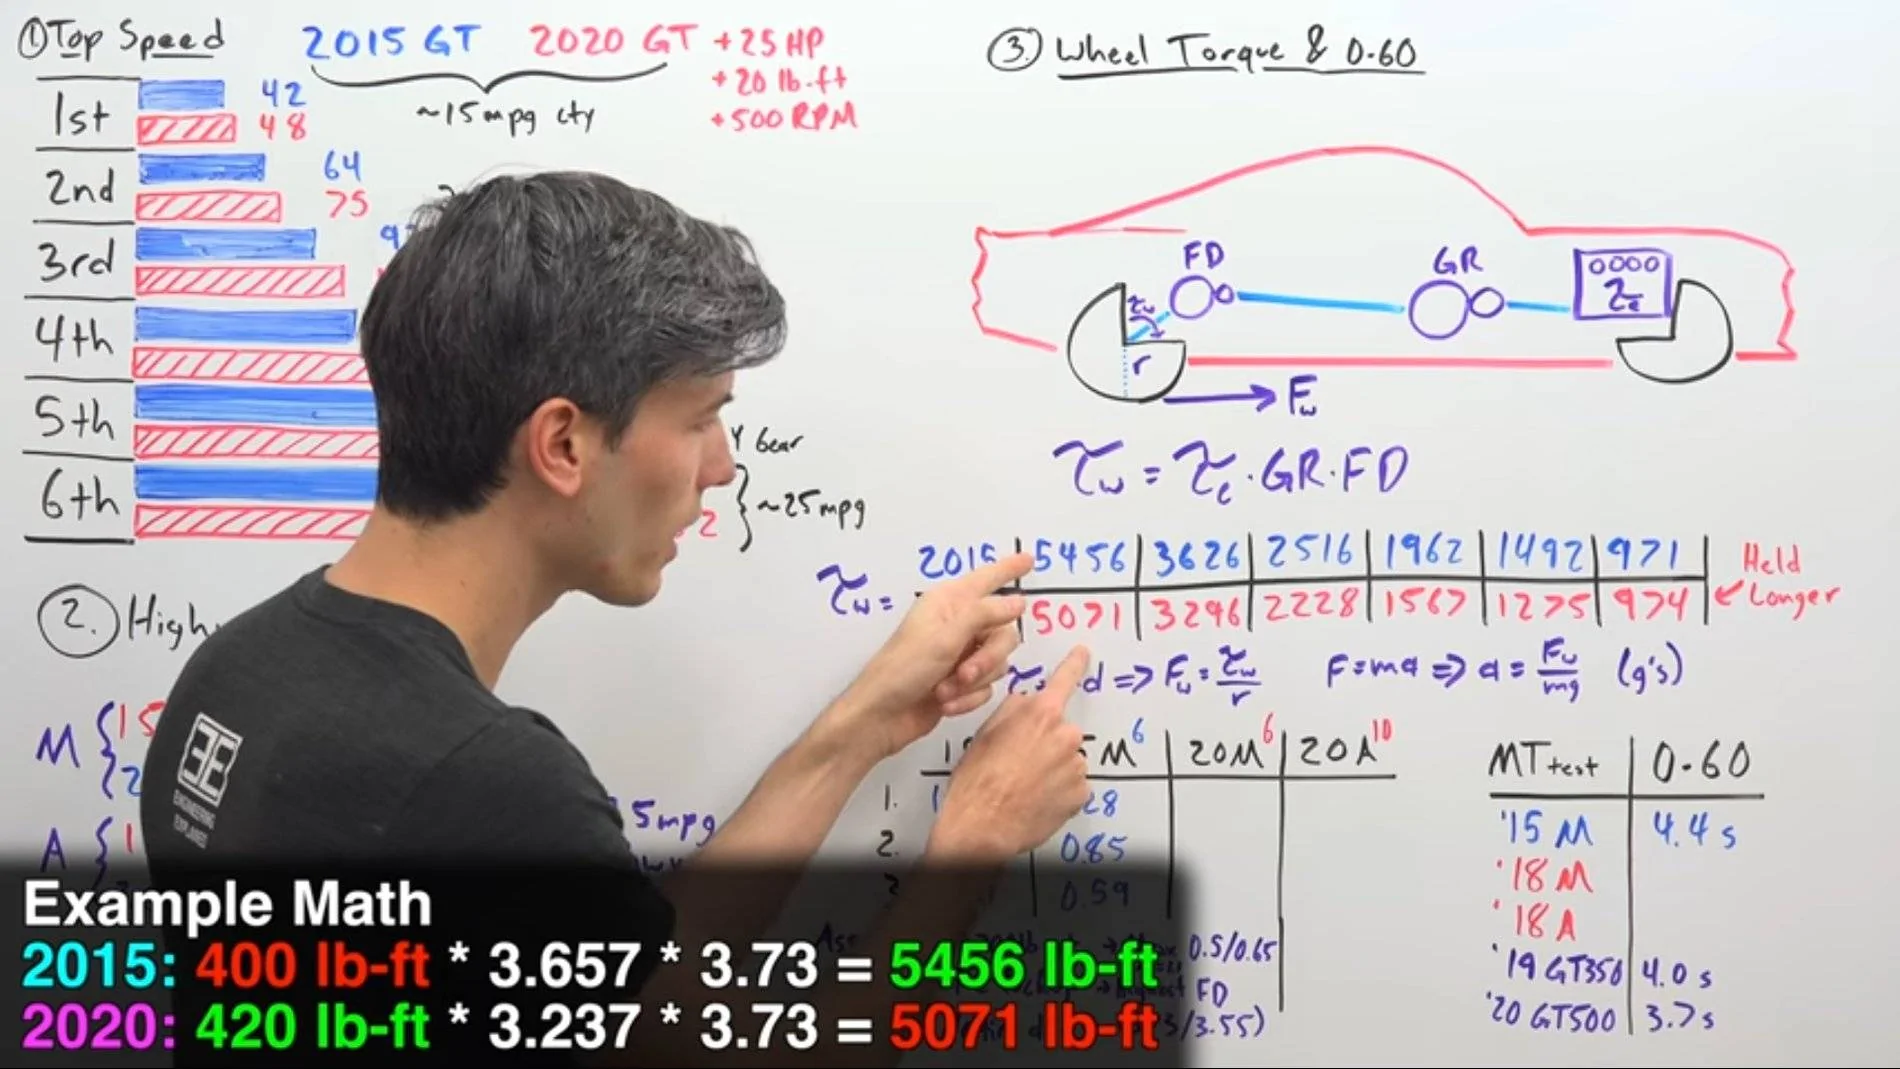 ① Top Speed
2015 GT 2020 GT +25 HP
+20 lb.ft
+500 RPM
~15 mpg cty
1st 42
48
2nd 64
75
3rd
4th
5th
6th
Gear
~25 mpg
2. High
M { 15
2
A { 1
5 mpg
3E
ENGINEERING
EXPLAINED
③ Wheel Torque & 0.60
FD GR 0000
τe
τw
r
Fw
τw = τe · GR · FD
τw = 2015 5456 3626 2516 1962 1492 971 Held
5071 3296 2228 1567 1275 974 ↙ Longer
d => Fw = τw/r F = ma => a = Fw/mg (g's)
M⁶ 20M⁶ 20A¹⁰
1. 28
2. 0.85
0.59
0.5/0.65
FD
3/3.55)
MT test 0.60
'15 M 4.4 s
'18 M
'18 A
'19 GT350 4.0 s
'20 GT500 3.7 s
Example Math
2015: 400 lb-ft * 3.657 * 3.73 = 5456 lb-ft
2020: 420 lb-ft * 3.237 * 3.73 = 5071 lb-ft